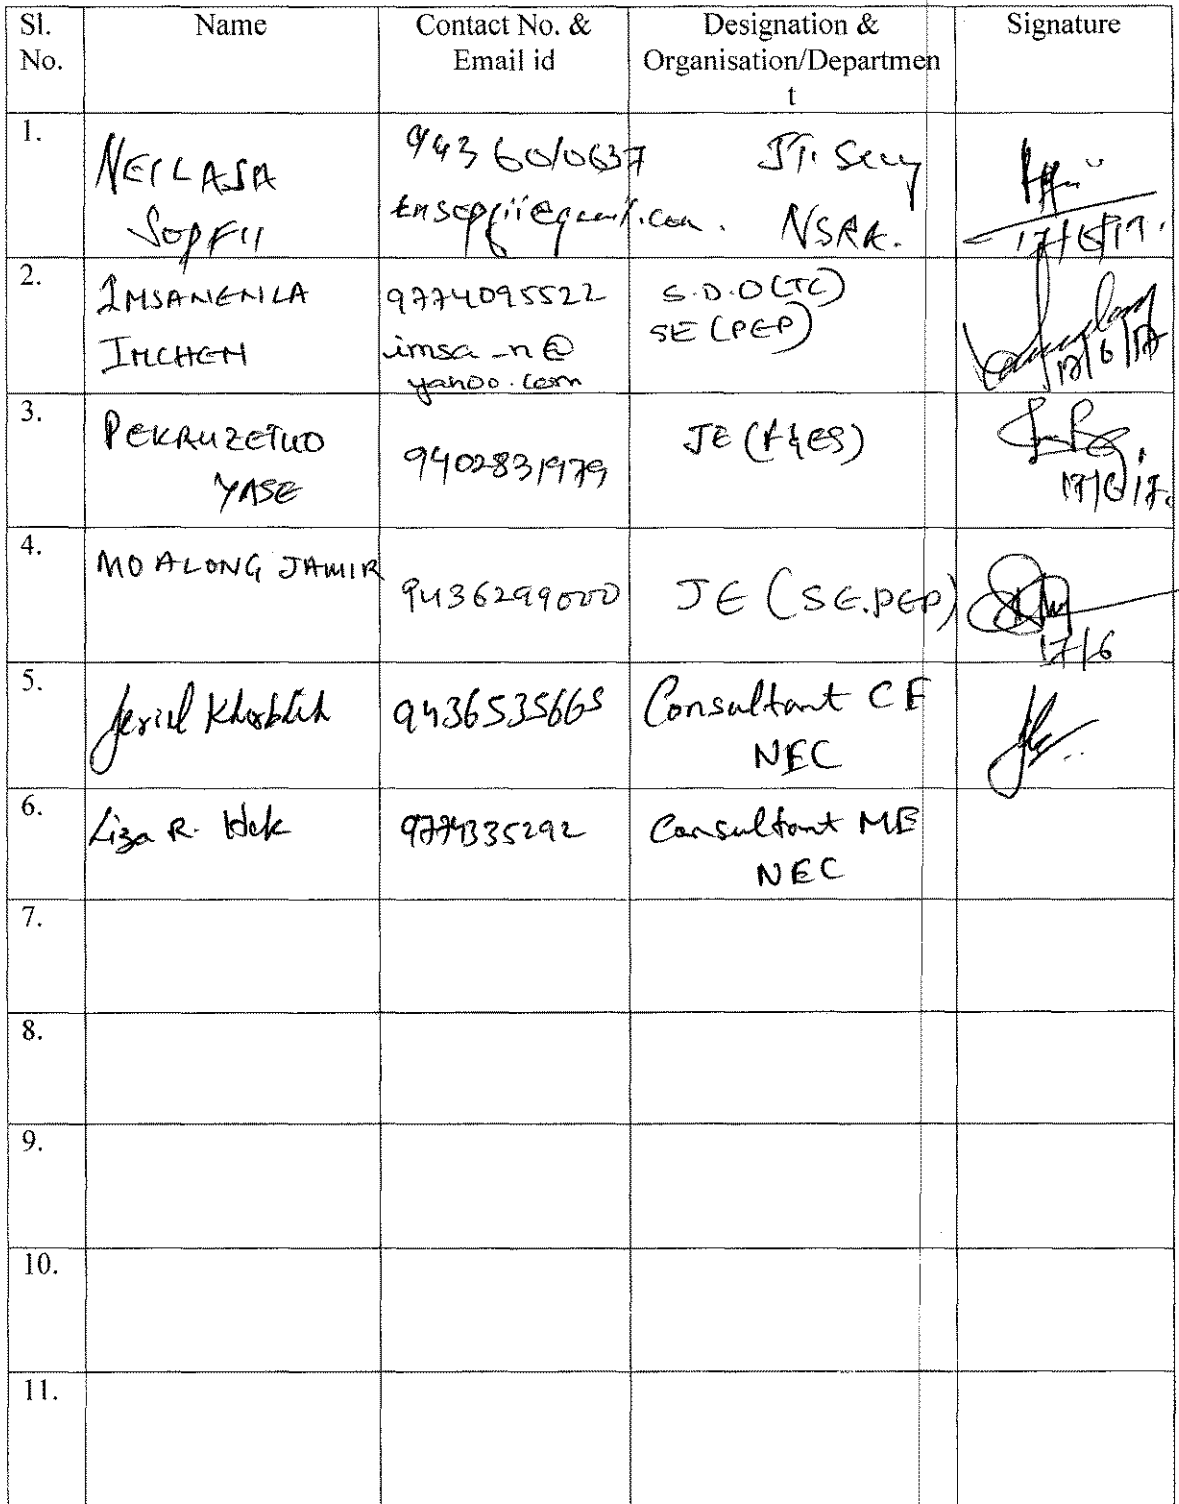 Sl. No.
Name
Contact No. & Email id
Designation & Organisation/Department
Signature
1.
NEILASA
SOPFII
9436010637
Jt. Secy
NSRA.
17/6/17.
2.
IMSANENLA
IMCHEN
9774095522
imsa_n@
yahoo.com
S.D.O (TC)
SE (PEP)
17/6/17
3.
PEKRUZETUO
YASE
9402831979
JE (F&ES)
17/6/17.
4.
MOALONG JAMIR
9436299000
JE (SE.PEP)
17/6
5.
9436535665
Consultant CE
NEC
6.
Liza R.
9774335292
Consultant ME
NEC
7.
8.
9.
10.
11.